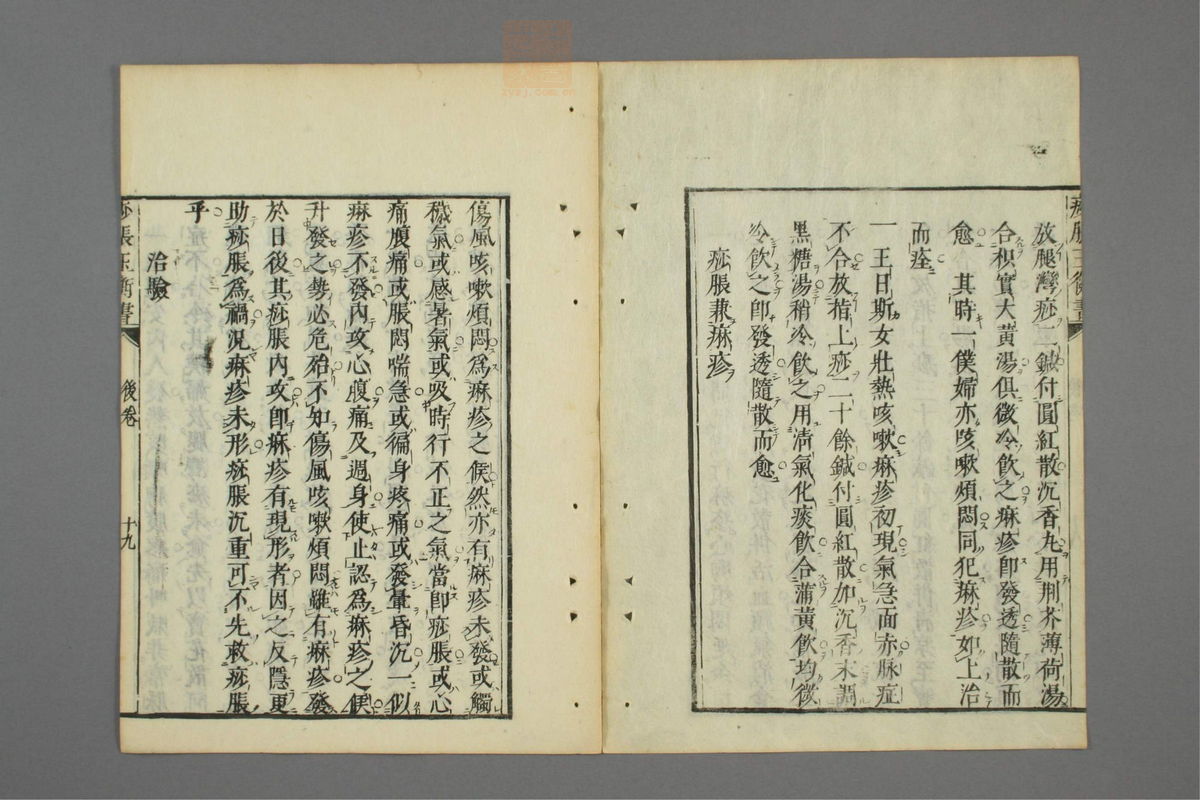 放腿灣痧二鍼付圓紅散沉香丸用荆芥薄荷湯
合枳實大黃湯俱微冷飲之痳疹卽發透隨散而
愈 其時一僕婦亦咳嗽煩悶同犯痳疹如上治
而痊
一 王日斯女壯熱咳嗽痳疹初現氣急面赤脉症
不合放指上痧二十餘鍼付圓紅散加沉香末調
黑糖湯稍冷飲之用清氣化痰飲合蒲黃飲均微
冷飲之卽發透隨散而愈
痧脹兼痳疹
傷風咳嗽煩悶爲痳疹之候然亦有麻疹未發或觸
穢氣或感暑氣或吸時行不正之氣當卽痧脹或心
痛腹痛或脹悶喘急或徧身疼痛或發暈昏沉一似
痳疹不發內攻心腹痛及遍身使止認爲痳疹之候
升發之勢必危殆不知傷風咳嗽煩悶雖有痳疹發
於日後其痧脹內攻卽痳疹有現形者因之反隱更
助痧脹爲禍況痳疹未形痧脹沉重可不先救痧脹
乎
治驗
痧脹玉衡書 後卷 十九
zysj.com.cn